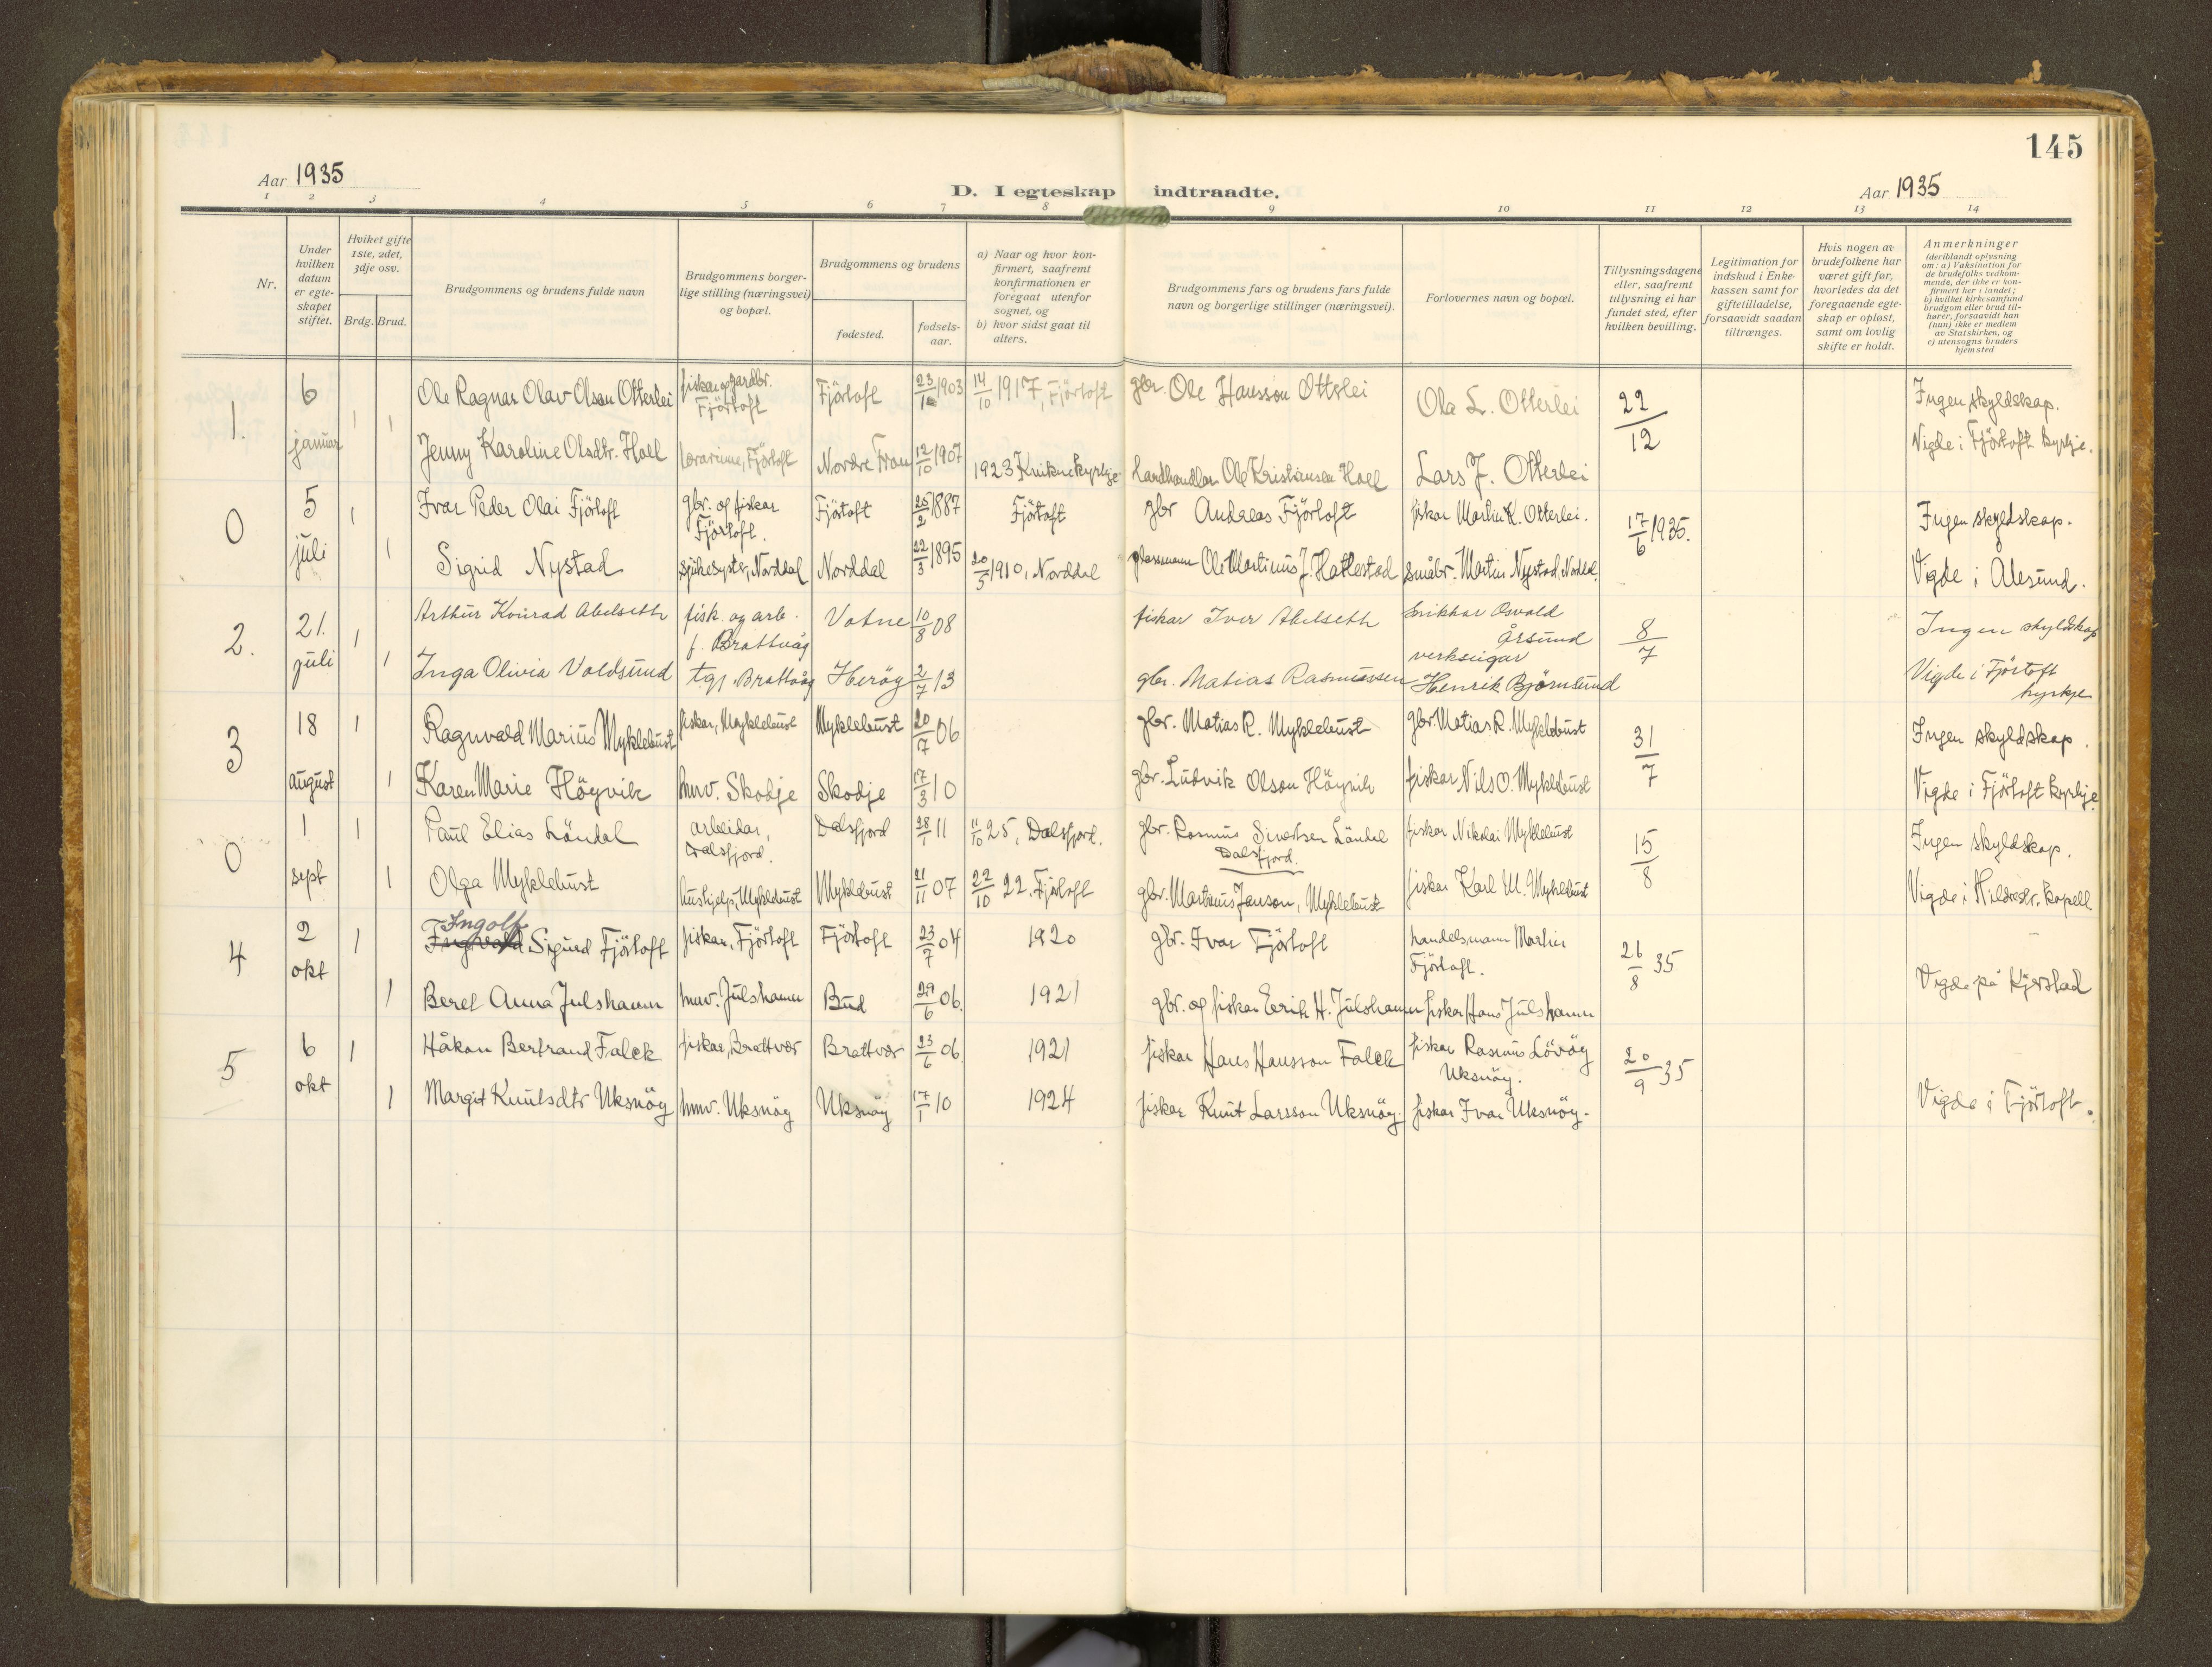 145
Aar 1935
D. I egteskap indtraadte.
Aar 1935
1 2 3 4 5 6 7 8 9 10 11 12 13 14
Nr.
Under hvilken datum er egte-skapet stiftet.
Hviket gifte 1ste, 2det, 3dje osv.
Brdg. Brud.
Brudgommens og brudens fulde navn
Brudgommens borger-lige stilling (næringsvei) og bopæl.
Brudgommens og brudens
fødested.
fødsels-aar.
a) Naar og hvor kon-firmert, saafremt konfirmationen er foregaat utenfor sognet, og
b) hvor sidst gaat til alters.
Brudgommens fars og brudens fars fulde navn og borgerlige stillinger (næringsvei).
Forlovernes navn og bopæl.
Tillysningsdagene eller, saafremt tillysning ei har fundet sted, efter hvilken bevilling.
Legitimation for indskud i Enke-kassen samt for giftetilladelse, forsaavidt saadan tiltrænges.
Hvis nogen av brudefolkene har været gift før, hvorledes da det foregaaende egte-skap er opløst, samt om lovlig skifte er holdt.
Anmerkninger (deriblandt oplysning om: a) Vaksination for de brudefolks vedkom-mende, der ikke er kon-firmert her i landet; b) hvilket kirkesamfund brudgom eller brud til-hører, forsaavidt han (hun) ikke er medlem av Statskirken, og c) utensogns bruders hjemsted
1. 6 januar 1 Ole Ragnar Olav Olsen Otterlei fiskar og gardbr. Fjörtoft Fjörtoft 23/10 1903 14/10 1917, Fjörtoft gbr. Ole Hansson Otterlei Ola L. Otterlei 22/12 Ingen skyldskap.
1 Jenny Karoline Olsdtr. Hoel lærarinne, Fjörtoft Nordre Fron 12/10 1907 1923 kyrkje landhandlar Ole Kristiansen Hoel Lars J. Otterlei Vigde i Fjörtoft kyrkje.
0 5 juli 1 Ivar Peder Olai Fjörtoft gbr. og fiskar Fjörtoft. Fjörtoft 25/2 1887 Fjörtoft gbr Andreas Fjörtoft fiskar Martin K. Otterlei. 17/6 1935. Ingen skyldskap.
1 Sigrid Nystad sjukesyster, Norddal Norddal 22/3 1895 20/5 1910, Norddal Ole Martinus J. Hatlestad småbr. Martin Nystad, Norddal. Vigde i Ålesund.
2. 21. juli 1 Arthur Konrad Abelseth fisk. og arb. f. Brattvåg Vatne 10/8 08 fiskar Iver Abelseth Osvald Årsund 8/7 Ingen skyldskap
1 Inga Olivia Voldsund tgj. Brattvåg Heröy 2/7 13 gbr. Matias Rasmussen verkseigar Henrik Björnsund Vigde i Fjörtoft kyrkje
3 18 august 1 Ragnvald Marius Myklebust fiskar, Myklebust Myklebust 20/7 06 gbr. Matias R. Myklebust gbr Matias R. Myklebust 31/7 Ingen skyldskap.
1 Karen Marie Höyvik hmv. Skodje Skodje 17/3 10 gbr. Ludvik Olson Höyvik fiskar Nils O. Myklebust Vigde i Fjörtoft kyrkje
0 1 sept 1 Paul Elias Löndal arbeidar, Dalsfjord. Dalsfjord 28/1 11 11/10 25, Dalsfjord. gbr. Rasmus Sivertsen Löndal Dalsfjord. fiskar Nikolai Myklebust 15/8 Ingen skyldskap.
1 Olga Myklebust hushjelp, Myklebust Myklebust 21/11 07 22/10 22, Fjörtoft gbr. Martinus Janson, Myklebust fiskar Karl M. Myklebust Vigde i Hildrestr. kapell
4 2 okt 1 Ingolf Ingvald Sigurd Fjörtoft fiskar, Fjörtoft Fjörtoft 23/7 04 1920 gbr. Ivar Fjörtoft handelsmann Martin Fjörtoft. 26/8 35
1 Beret Anna Julshamn hmv. Julshamn Bud 29/6 06. 1921 gbr. og fiskar Eerik H. Julshamn fiskar Hans Julshamn Vigde på Kjerstad
5 6 okt 1 Håkon Bertrand Falck fiskar, Brattvær Brattvær 23/6 06. 1921 fiskar Hans Hansson Falck fiskar Rasmus Lövöy Uksnöy. 20/9 35
1 Margit Knutsdtr Uksnöy hmv. Uksnöy Uksnöy 17/1 10 1924 fiskar Knut Larsson Uksnöy. fiskar Ivar Uksnöy. Vigde i Fjörtoft.